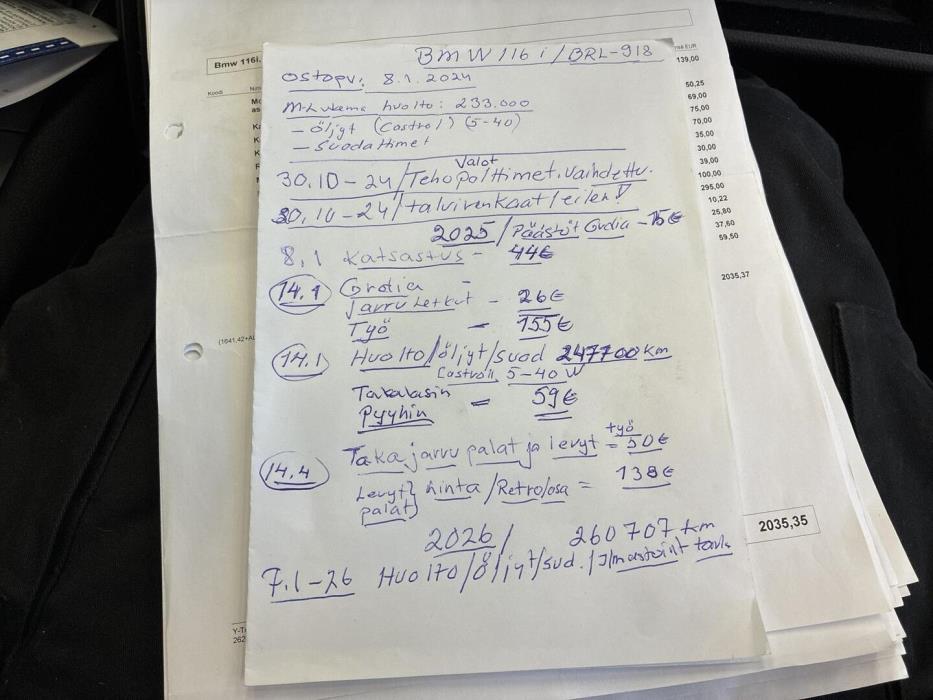 BMW 116 i / BRL-918
Ostopv: 8.1.2024
M-Lukema huolto: 233.000
- Öljyt (Castrol) (5-40)
- Suodattimet
Valot
30.10-24/Tehopolttimet. Vaihdettu.
30.10-24/talvirenkaat/eilen!
2025/Päästöt Ovdia - 15€
8,1 Katsastus - 44€
14.1 Grotia -
Jarru Letkut - 26€
Työ - 155€
14.1 Huolto/öljyt/suod 247700 km
Castroll 5-40 W
Takalasin
Pyyhin = 59€
työ
14.4 Taka jarru palat ja levyt = 50€
Levyt} hinta/Retro/osa = 138€
palat}
2026/ 260 707 km
7.1-26 Huolto/Öljyt/sud./Ilmastoint tark
Bmw 116i.
Koodi
139,00
50,25
69,00
75,00
70,00
35,00
30,00
39,00
100,00
295,00
10,22
25,80
37,60
59,50
2035,37
2035,35